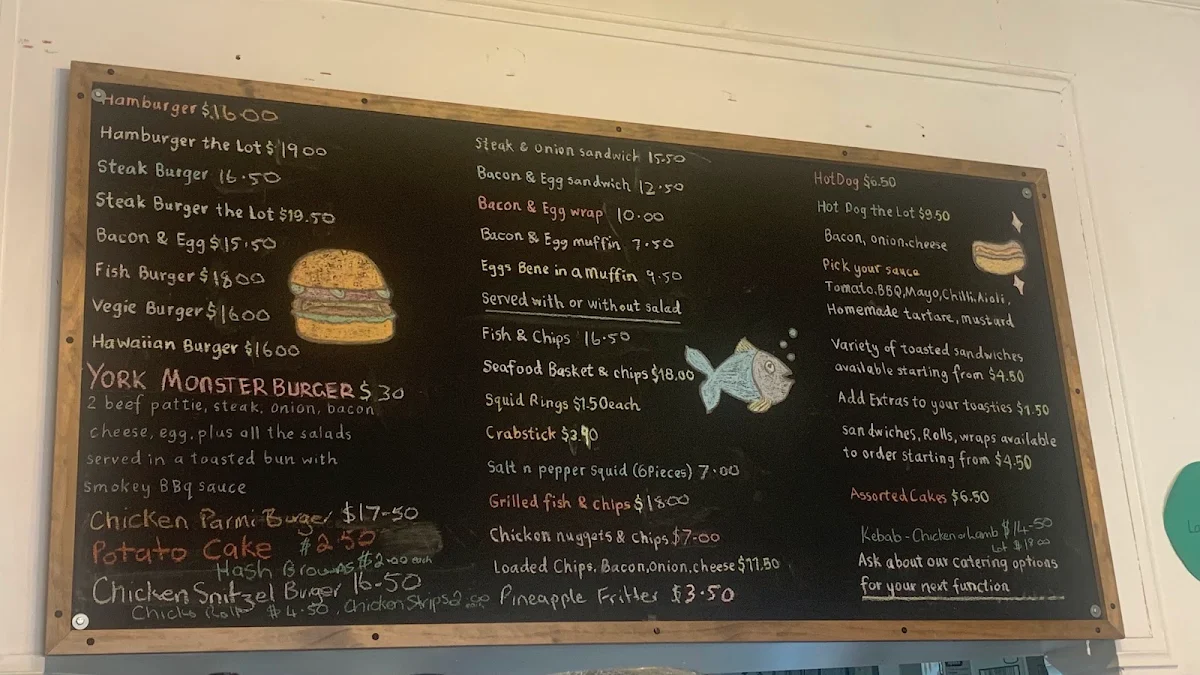 Hamburger $16.00
Hamburger the Lot $19.00
Steak Burger 16.50
Steak Burger the Lot $19.50
Bacon & Egg $15.50
Fish Burger $18.00
Vegie Burger $16.00
Hawaiian Burger $16.00
YORK MONSTER BURGER $30
2 beef pattie, steak, onion, bacon
cheese, egg, plus all the salads
served in a toasted bun with
smokey BBq sauce
Chicken Parmi Burger $17-50
Potato Cake $2.50
Hash Browns $2.00 each
Chicken Snitzel Burger 16-50
$4.50, Chicken Strips
Steak & onion sandwich 15.50
Bacon & Egg sandwich 12.50
Bacon & Egg wrap 10.00
Bacon & Egg muffin 7.50
Eggs Bene in a Muffin 9.50
Served with or without salad
Fish & Chips 16.50
Seafood Basket & chips $18.00
Squid Rings $1.50 each
Crabstick $3.90
Salt n pepper squid (6 Pieces) 7.00
Grilled fish & chips $18.00
Chicken nuggets & chips $7-00
Loaded Chips. Bacon, onion, cheese $11.50
Pineapple Fritter $3.50
Hot Dog $6.50
Hot Dog the Lot $9.50
Bacon, onion.cheese
Pick your sauce
Tomato.BBQ,Mayo,Chilli,Aioli,
Homemade tartare, mustard
Variety of toasted sandwiches
available starting from $4.50
Add Extras to your toasties $1.50
sandwiches, Rolls, wraps available
to order starting from $4.50
Assorted Cakes $6.50
Kebab - Chicken or Lamb $14-50
Lot $18.00
Ask about our catering options
for your next function